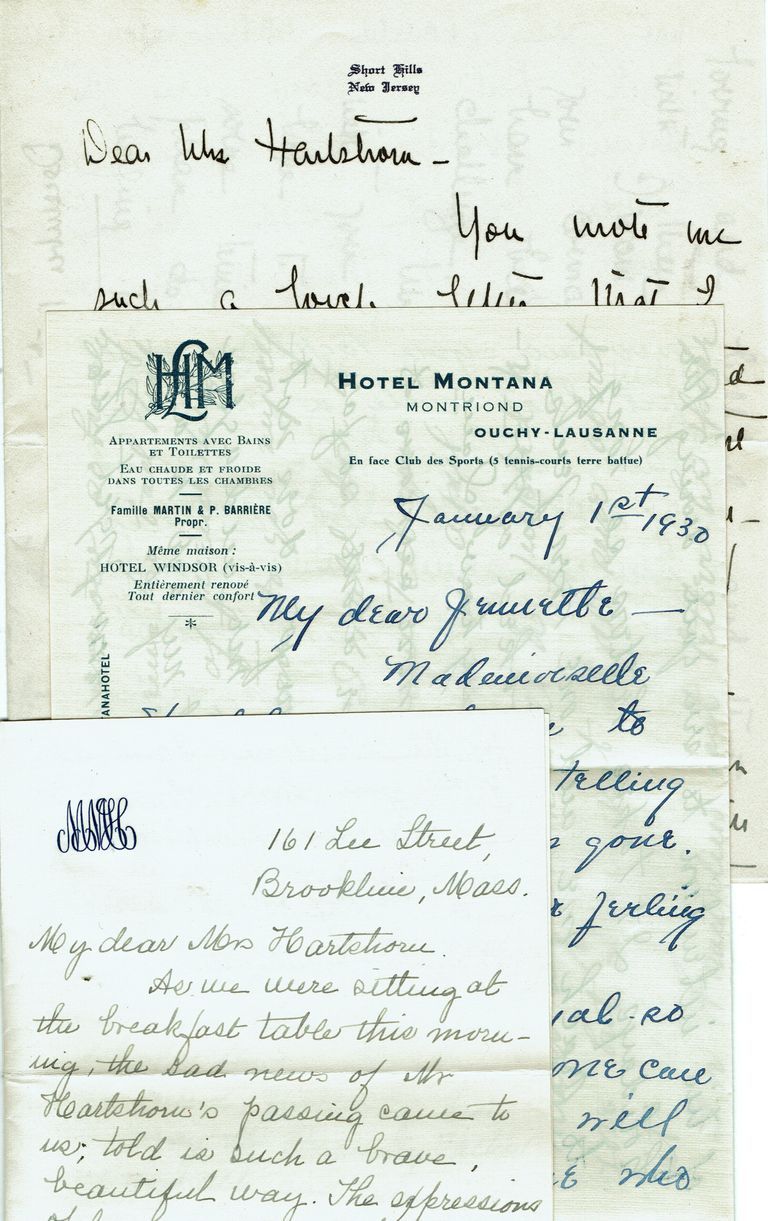 Short Hills
New Jersey
Dear Mrs Hartshorn -
You wrote me
such a lovely letter that I
HLM
HOTEL MONTANA
MONTRIOND
OUCHY-LAUSANNE
En face Club des Sports (5 tennis-courts terre battue)
APPARTEMENTS AVEC BAINS
ET TOILETTES
EAU CHAUDE ET FROIDE
DANS TOUTES LES CHAMBRES
Famille MARTIN & P. BARRIÈRE
Propr.
Même maison :
HOTEL WINDSOR (vis-à-vis)
Entièrement renové
Tout dernier confort
*
ANAHOTEL
January 1st 1930
My dear Jennette —
Mademoiselle
to
telling
gone.
feeling
so
one can
will
who
161 Lee Street,
Brookline, Mass.
My dear Mrs Hartshorn.
As we were sitting at
the breakfast table this morn-
ing, the sad news of Mr
Hartshorn's passing came to
us; told is such a brave,
beautiful way. The expressions